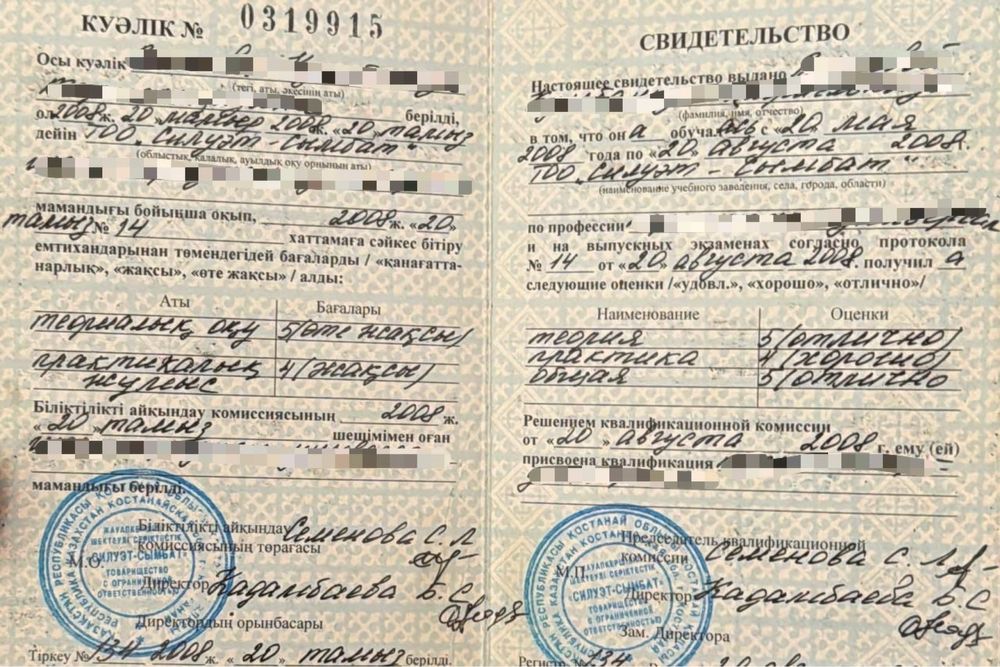 КУӘЛІК № 0319915
Осы куәлік
(тегі, аты, әкесінің аты)
берілді,
ол 2008 ж. «20» мамыр 2008 ж. «20» тамыз
дейін ТОО „Силуэт-Сымбат"
(облыстық, қалалық, ауылдық оқу орнының аты)
мамандығы бойыңша оқып, 2008 ж. «20»
тамыз № 14 хаттамаға сәйкес бітіру
емтихандарынан төмендегідей бағаларды / «қанағатта-
нарлық», «жақсы», «өте жақсы» / алды:
Аты Бағалары
теориалық оқу 5 (өте жақсы)
практикалық 4 (жақсы)
жұмыс
Біліктілікті айқындау комиссиясының 2008 ж.
«20» тамыз шешімімен оған
мамандығы берілді.
Біліктілікті айқындау
комиссиясының төрағасы Семенова С. Л
М.О.
Директор Кадамбаева Б. С
Директордың орынбасары
Тіркеу № 134 2008 ж. «20» тамыз берілді.
СВИДЕТЕЛЬСТВО
Настоящее свидетельство выдано
(фамилия, имя, отчество)
в том, что он а обучалась с «20» мая
2008 года по «20» августа 2008 г.
ТОО „Силуэт - Сымбат"
(наименование учебного заведения, села, города, области)
по профессии
и на выпускных экзаменах согласно протокола
№ 14 от «20» августа 2008 г. получил а
следующие оценки /«удовл.», «хорошо», «отлично»/
Наименование Оценки
теория 5 (отлично)
практика 4 (хорошо)
общая 5 (отлично
Решением квалификационной комиссии
от «20» августа 2008 г. ему (ей)
присвоена квалификация
Председатель квалификационной
комиссии Семенова С. Л
М.П.
Директор Кадамбаева Б. С
Зам. Директора
Регистр. № 134
ЖАУАПКЕРШІЛІГІ
ШЕКТЕУЛІ СЕРІКТЕСТІК
"СИЛУЭТ-СЫМБАТ"
ТОВАРИЩЕСТВО
С ОГРАНИЧЕННОЙ
ОТВЕТСТВЕННОСТЬЮ